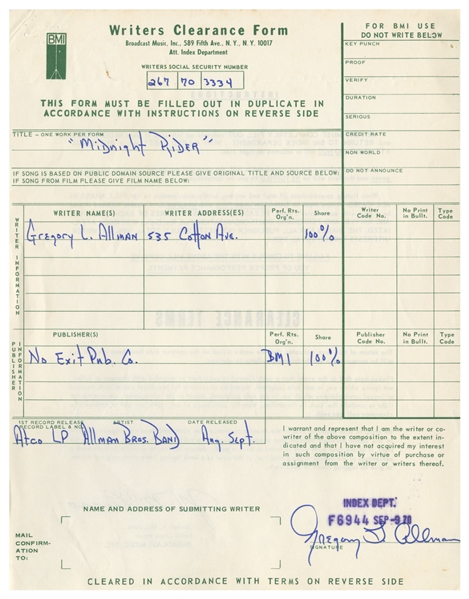 BMI
Writers Clearance Form
Broadcast Music, Inc., 589 Fifth Ave., N. Y., N. Y. 10017
Att. Index Department
WRITERS SOCIAL SECURITY NUMBER
267 70 3334
THIS FORM MUST BE FILLED OUT IN DUPLICATE IN
ACCORDANCE WITH INSTRUCTIONS ON REVERSE SIDE
FOR BMI USE
DO NOT WRITE BELOW
KEY PUNCH
PROOF
VERIFY
DURATION
SERIOUS
CREDIT RATE
NON WORLD
DO NOT ANNOUNCE
TITLE – ONE WORK PER FORM
"Midnight Rider"
IF SONG IS BASED ON PUBLIC DOMAIN SOURCE PLEASE GIVE ORIGINAL TITLE AND SOURCE BELOW:
IF SONG FROM FILM PLEASE GIVE FILM NAME BELOW:
WRITER INFORMATION
WRITER NAME(S) WRITER ADDRESS(ES) Perf. Rts. Org'n. Share Writer Code No. No Print in Bullt. Type Code
Gregory L. Allman 535 Cotton Ave. 100%
PUBLISHER INFORMATION
PUBLISHER(S) Perf. Rts. Org'n. Share Publisher Code No. No Print in Bullt. Type Code
No Exit Pub. Co. BMI 100%
1ST RECORD RELEASE RECORD LABEL & NO. ARTIST DATE RELEASED
Atco LP Allman Bros. Band Aug. Sept.
I warrant and represent that I am the writer or co-
writer of the above composition to the extent in-
dicated and that I have not acquired my interest
in such composition by virtue of purchase or
assignment from the writer or writers thereof.
NAME AND ADDRESS OF SUBMITTING WRITER
MAIL
CONFIRM-
ATION
TO:
INDEX DEPT.
F6944 SEP
Gregory L Allman
SIGNATURE
CLEARED IN ACCORDANCE WITH TERMS ON REVERSE SIDE